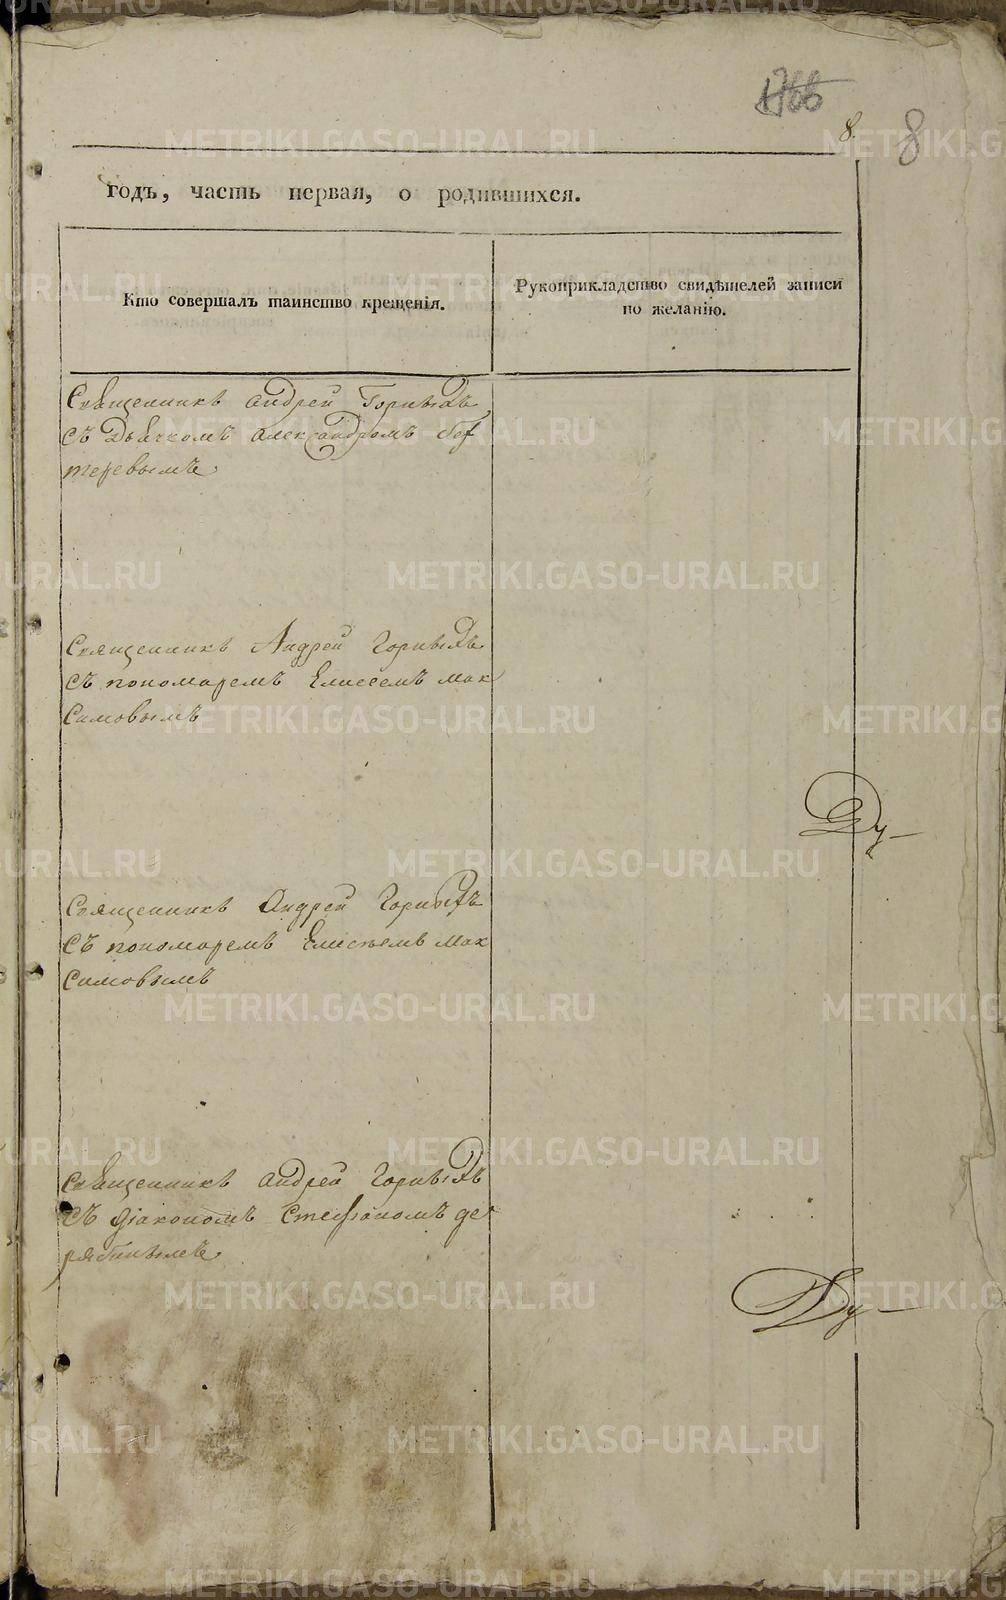 8.
8
годъ, часть первая, о родившихся.
Кто совершалъ таинство крещенія.
Рукоприкладство свидѣтелей записи
по желанію.
Священникъ Андрей Горныхъ
съ Дьячкомъ Александромъ
Священникъ Андрей Горныхъ
съ пономаремъ Елисеемъ Мак
симовымъ
Священникъ Андрей Горныхъ
съ пономаремъ Елисѣемъ Мак
симовымъ
Священникъ Андрей Горныхъ
съ діакономъ Стефаномъ де
рябинымъ
METRIKI.GASO-URAL.RU